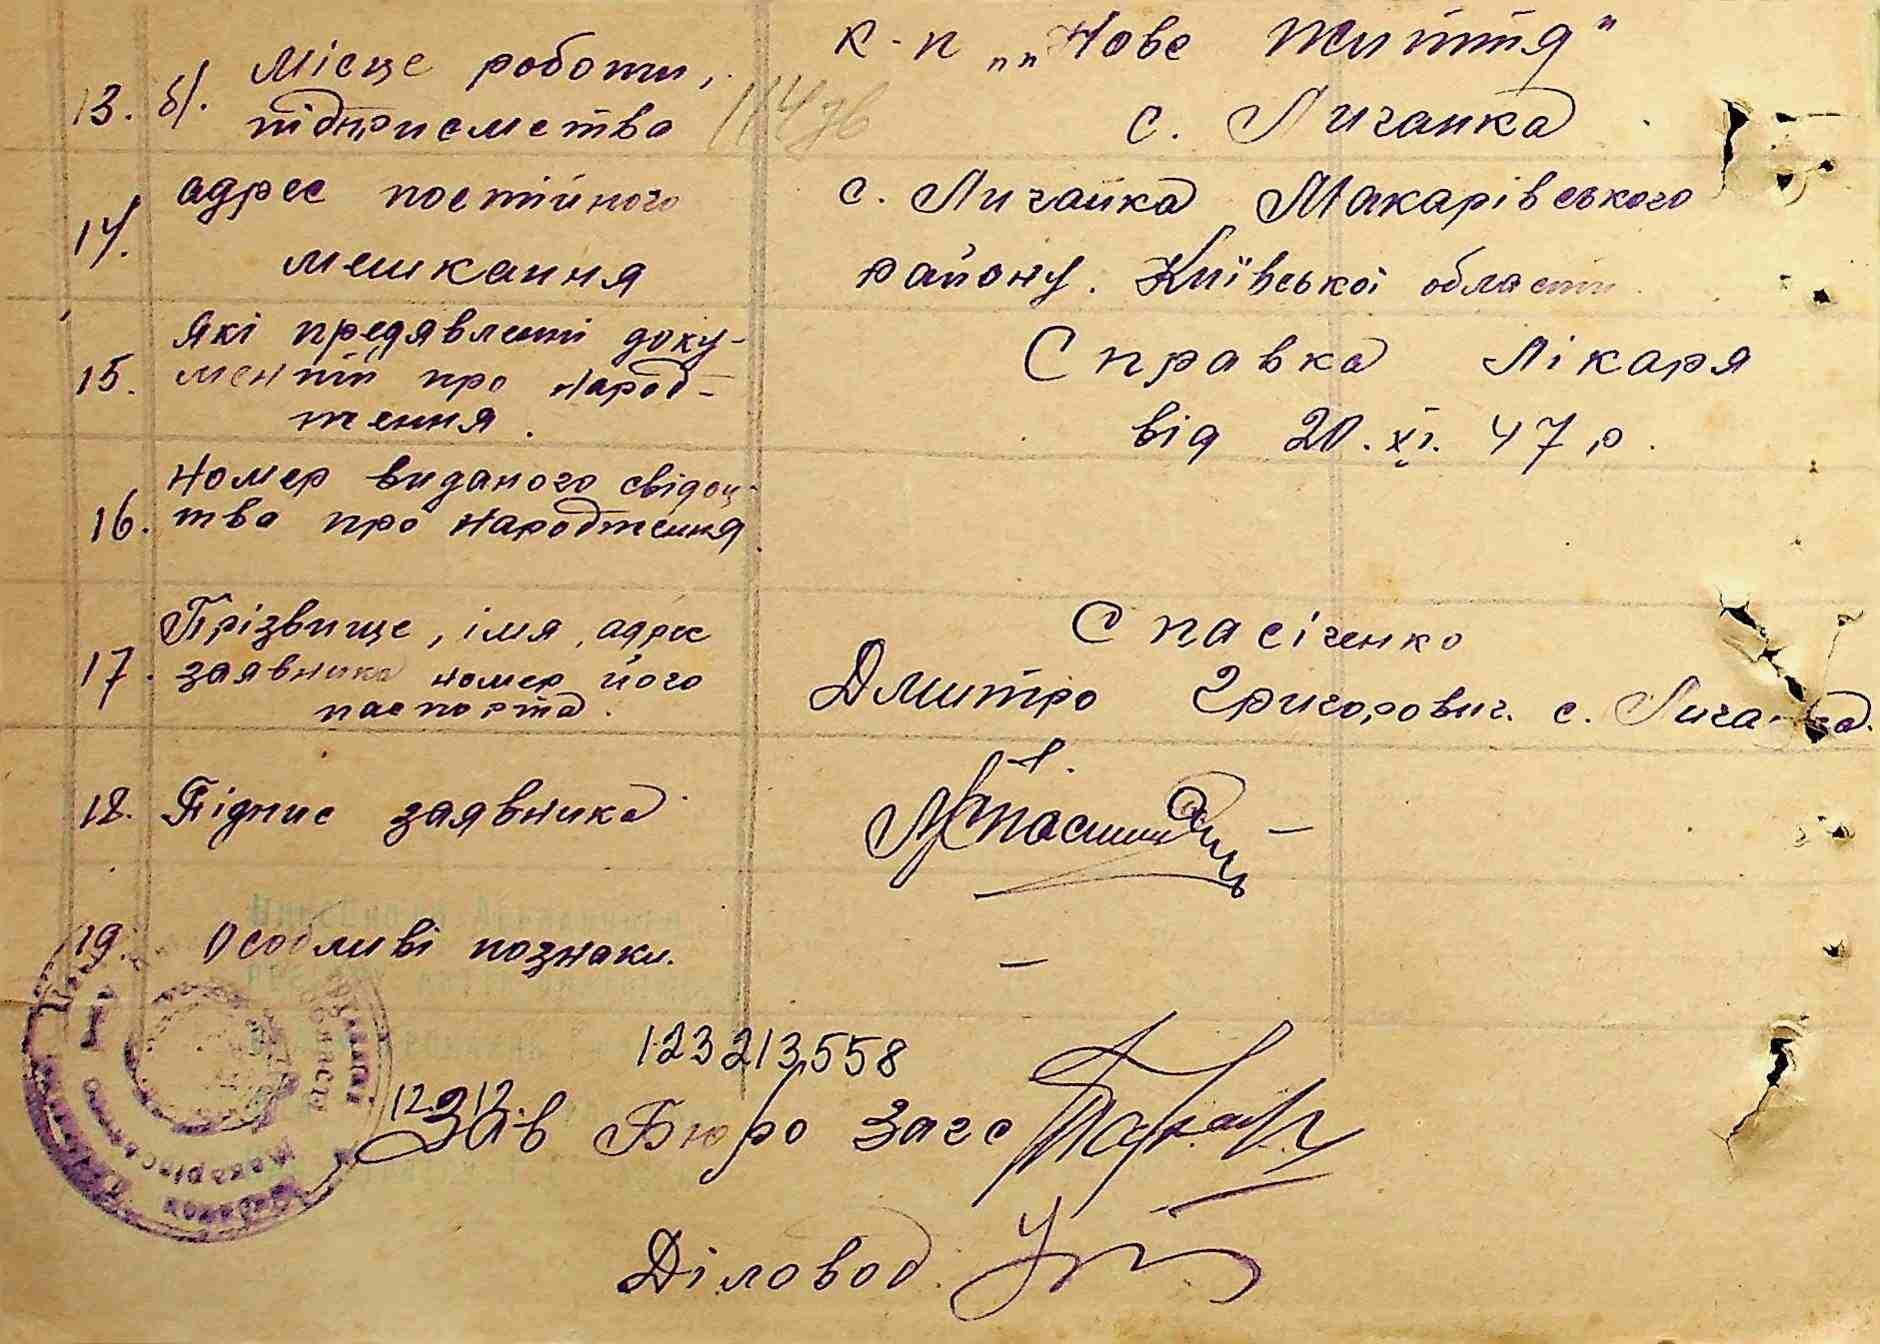 13. б). Місце роботи,
підприємства
к-п „„Нове життя"
с. Личанка
14. адрес постійного
мешкання
с. Личанка Макарівського
району. Київської области
15. Які предявлені доку-
менти про народ-
ження.
Справка лікаря
від 20. XI. 47 р.
16. Номер виданого свідоц-
тва про народження
17. Прізвище, імя, адрес
заявника номер його
паспорта.
Спасіченко
Дмитро Григорович. с. Личанка.
18. Підпис заявника
19. Особливі познаки.
—
123213558
12.212.
Зав Бюро Загс
Діловод